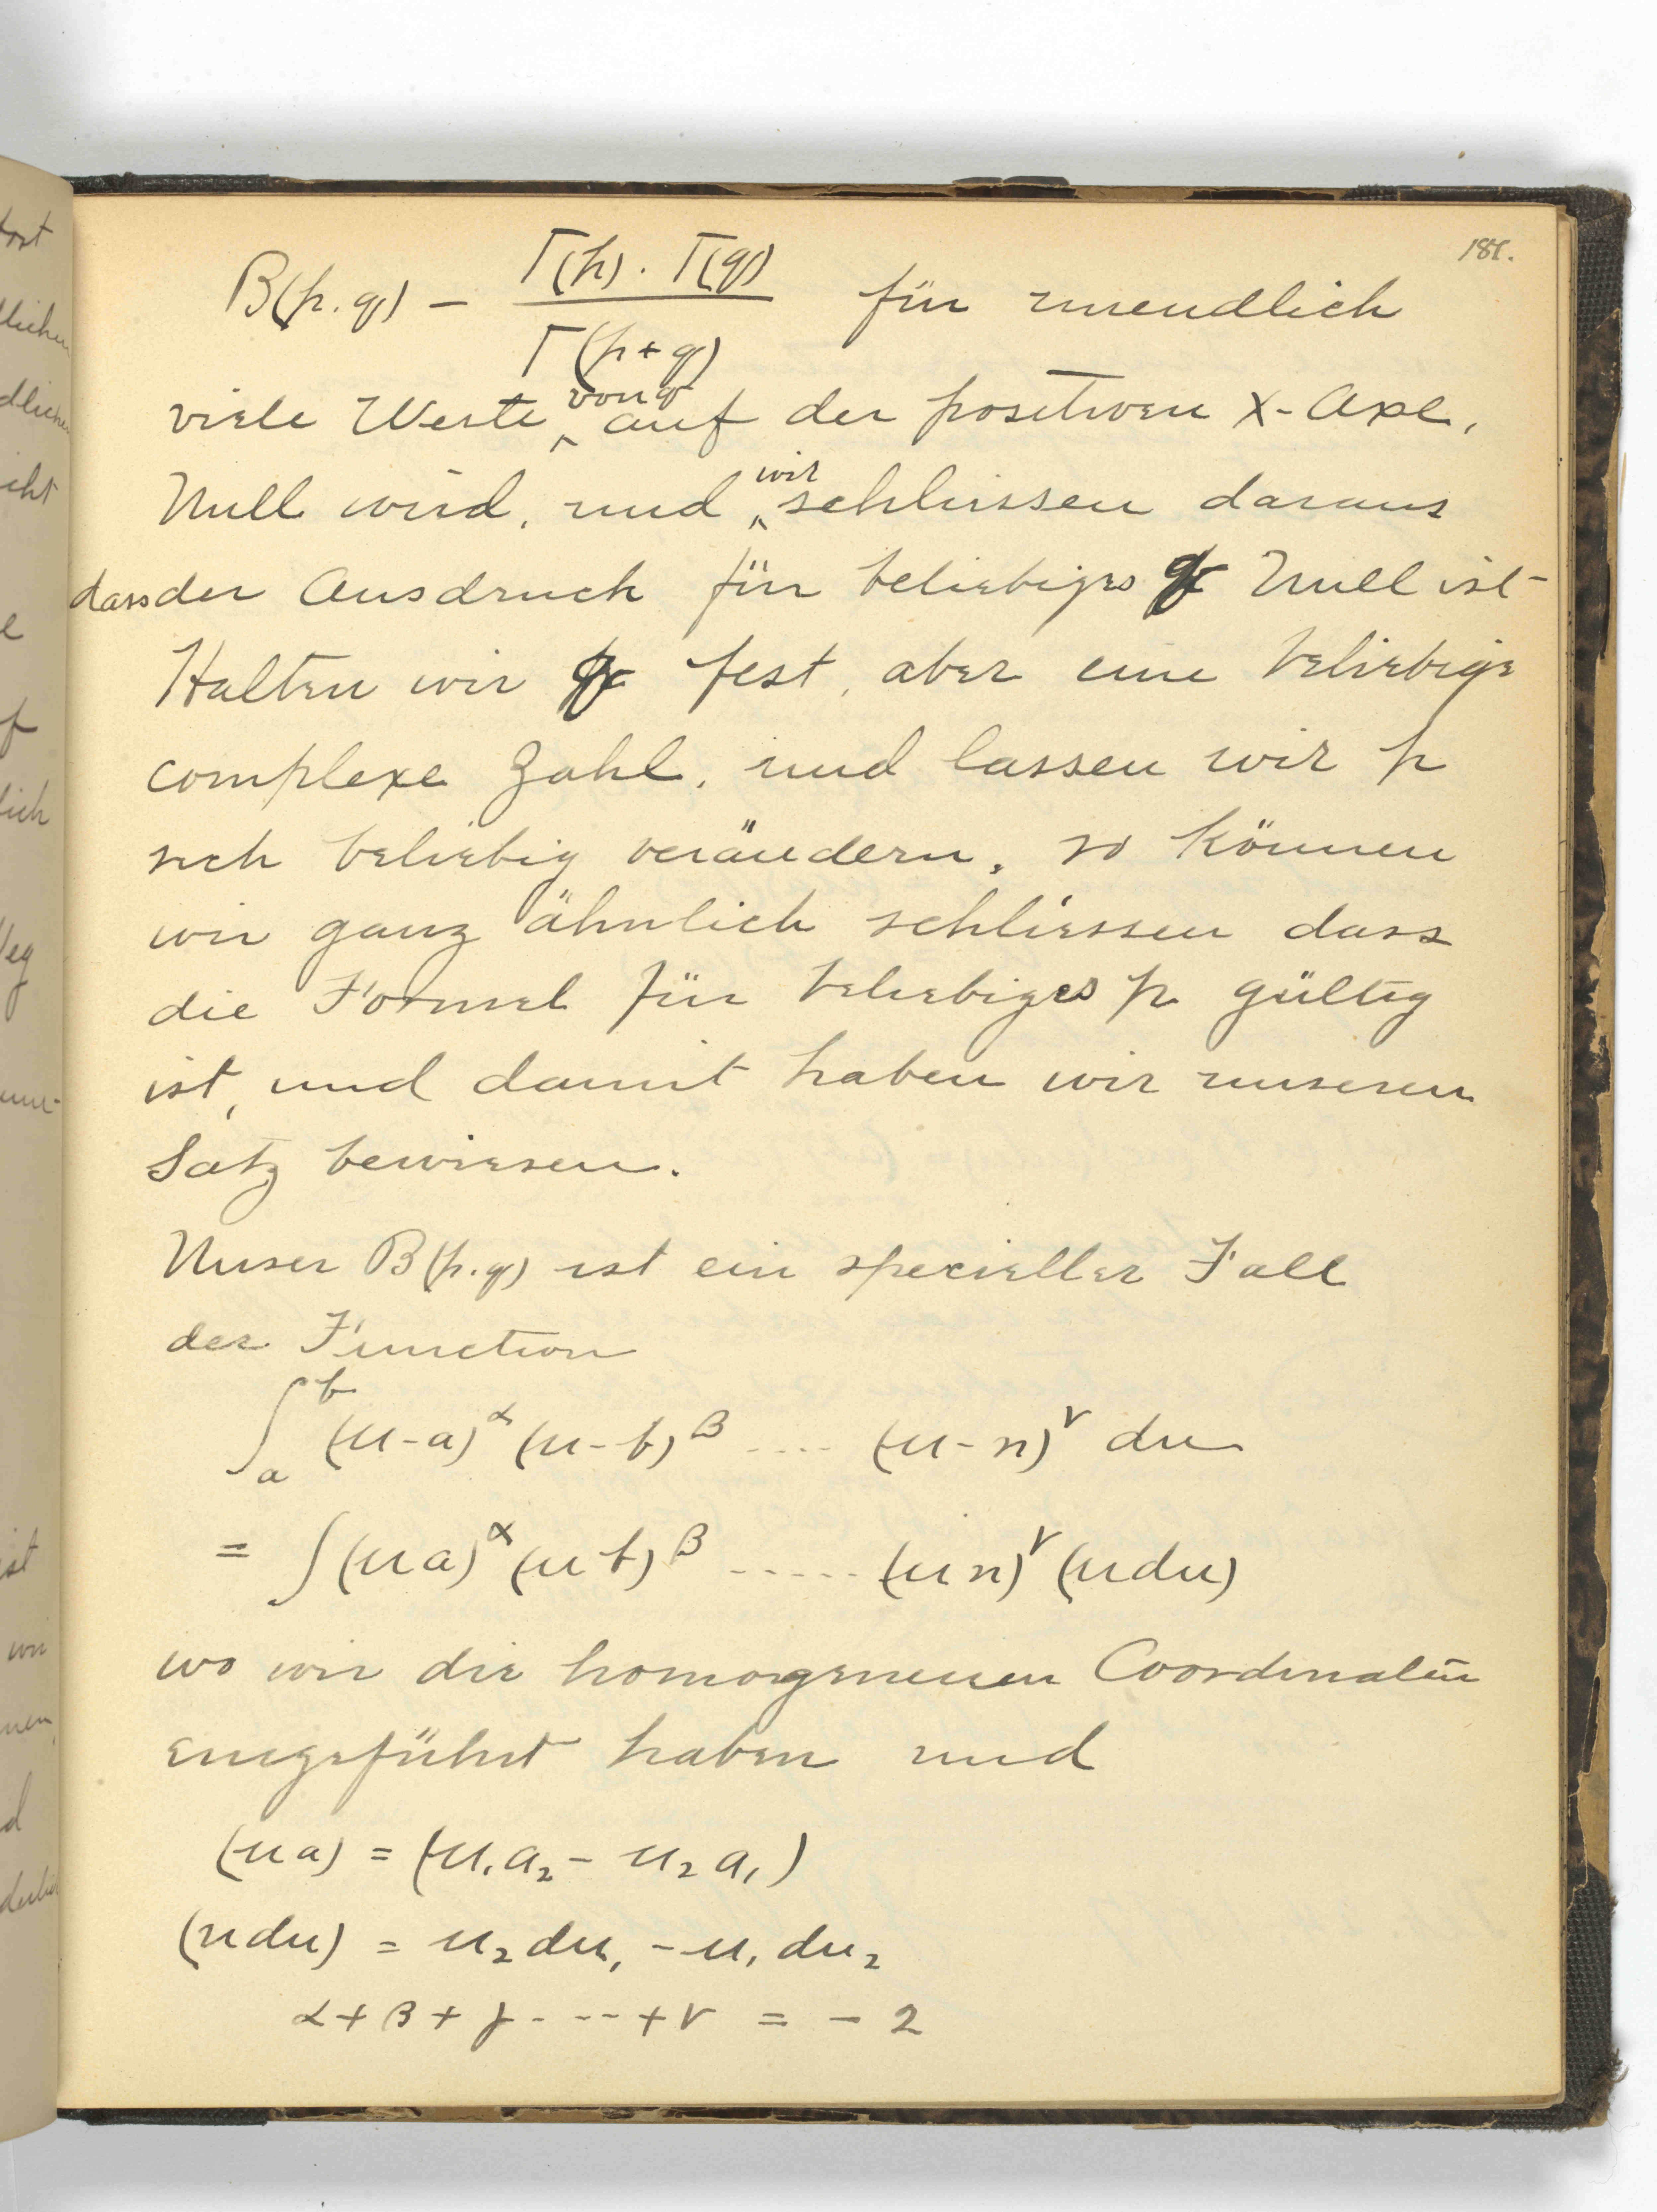 181.
B(p.q) - Γ(p) . Γ(q) / Γ(p+q) für unendlich
viele Werte von q auf der positiven X-Axe,
Null wird, und wir schliessen daraus
dass der Ausdruck für beliebiges q Null ist
Halten wir q fest, aber eine beliebige
complexe Zahl, und lassen wir p
sich beliebig verändern, so können
wir ganz ähnlich schliessen dass
die Formel für beliebiges p gültig
ist, und damit haben wir unseren
Satz bewiesen.
Unser B(p.q) ist ein specieller Fall
der Function
∫_a^b (u-a)^α (u-b)^β .... (u-n)^ν du
= ∫ (ua)^α (ub)^β ..... (un)^ν (udu)
wo wir die homogeneuen Coordinaten
eingeführt haben und
(ua) = (u₁a₂ - u₂a₁)
(udu) = u₂du₁ - u₁du₂
α + β + γ - -- + ν = - 2